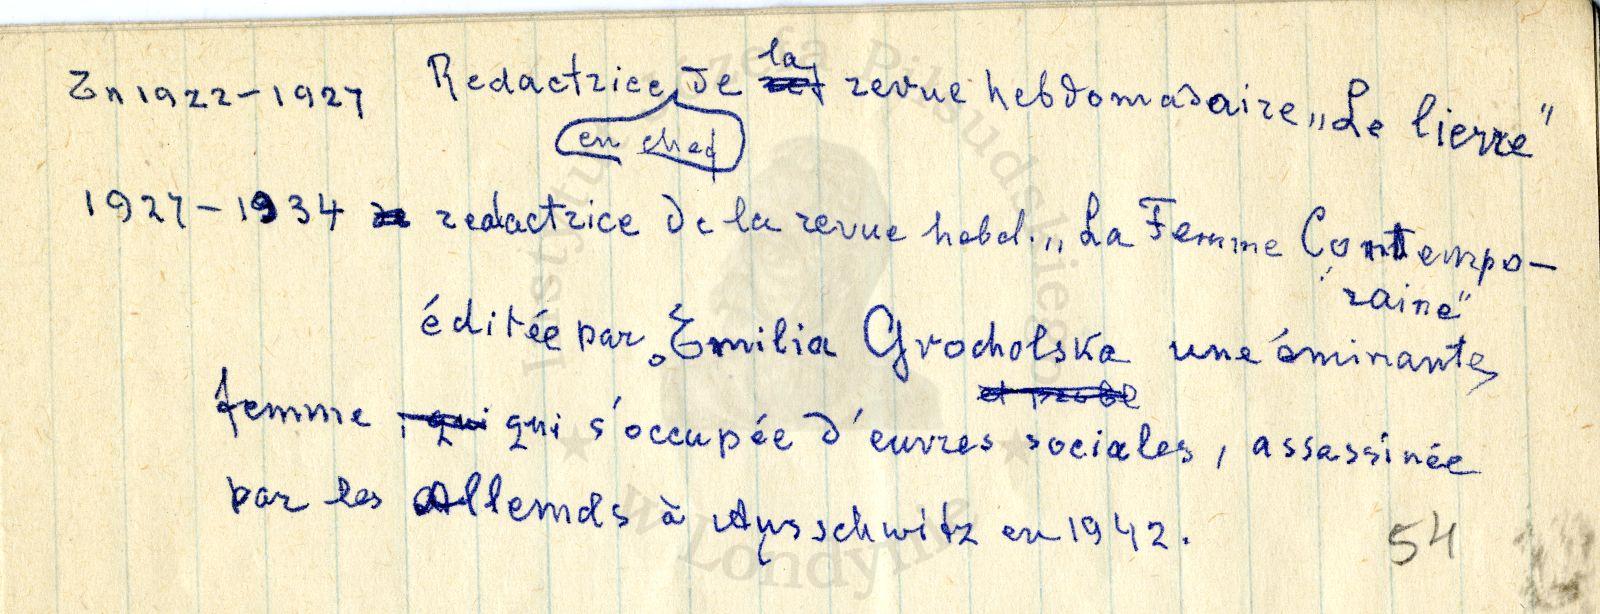 En 1922-1927 Redactrice en chef de la revue hebdomadaire „Le lierre"
1927-1934 redactrice de la revue hebd. „La Femme Contempo-
raine"
éditée par Emilia Grocholska une éminante
femme qui s'occupée d'euvres sociales, assassinée
par les Allemds à Ausschwitz en 1942.
54
Instytut Józefa Piłsudskiego
w Londynie